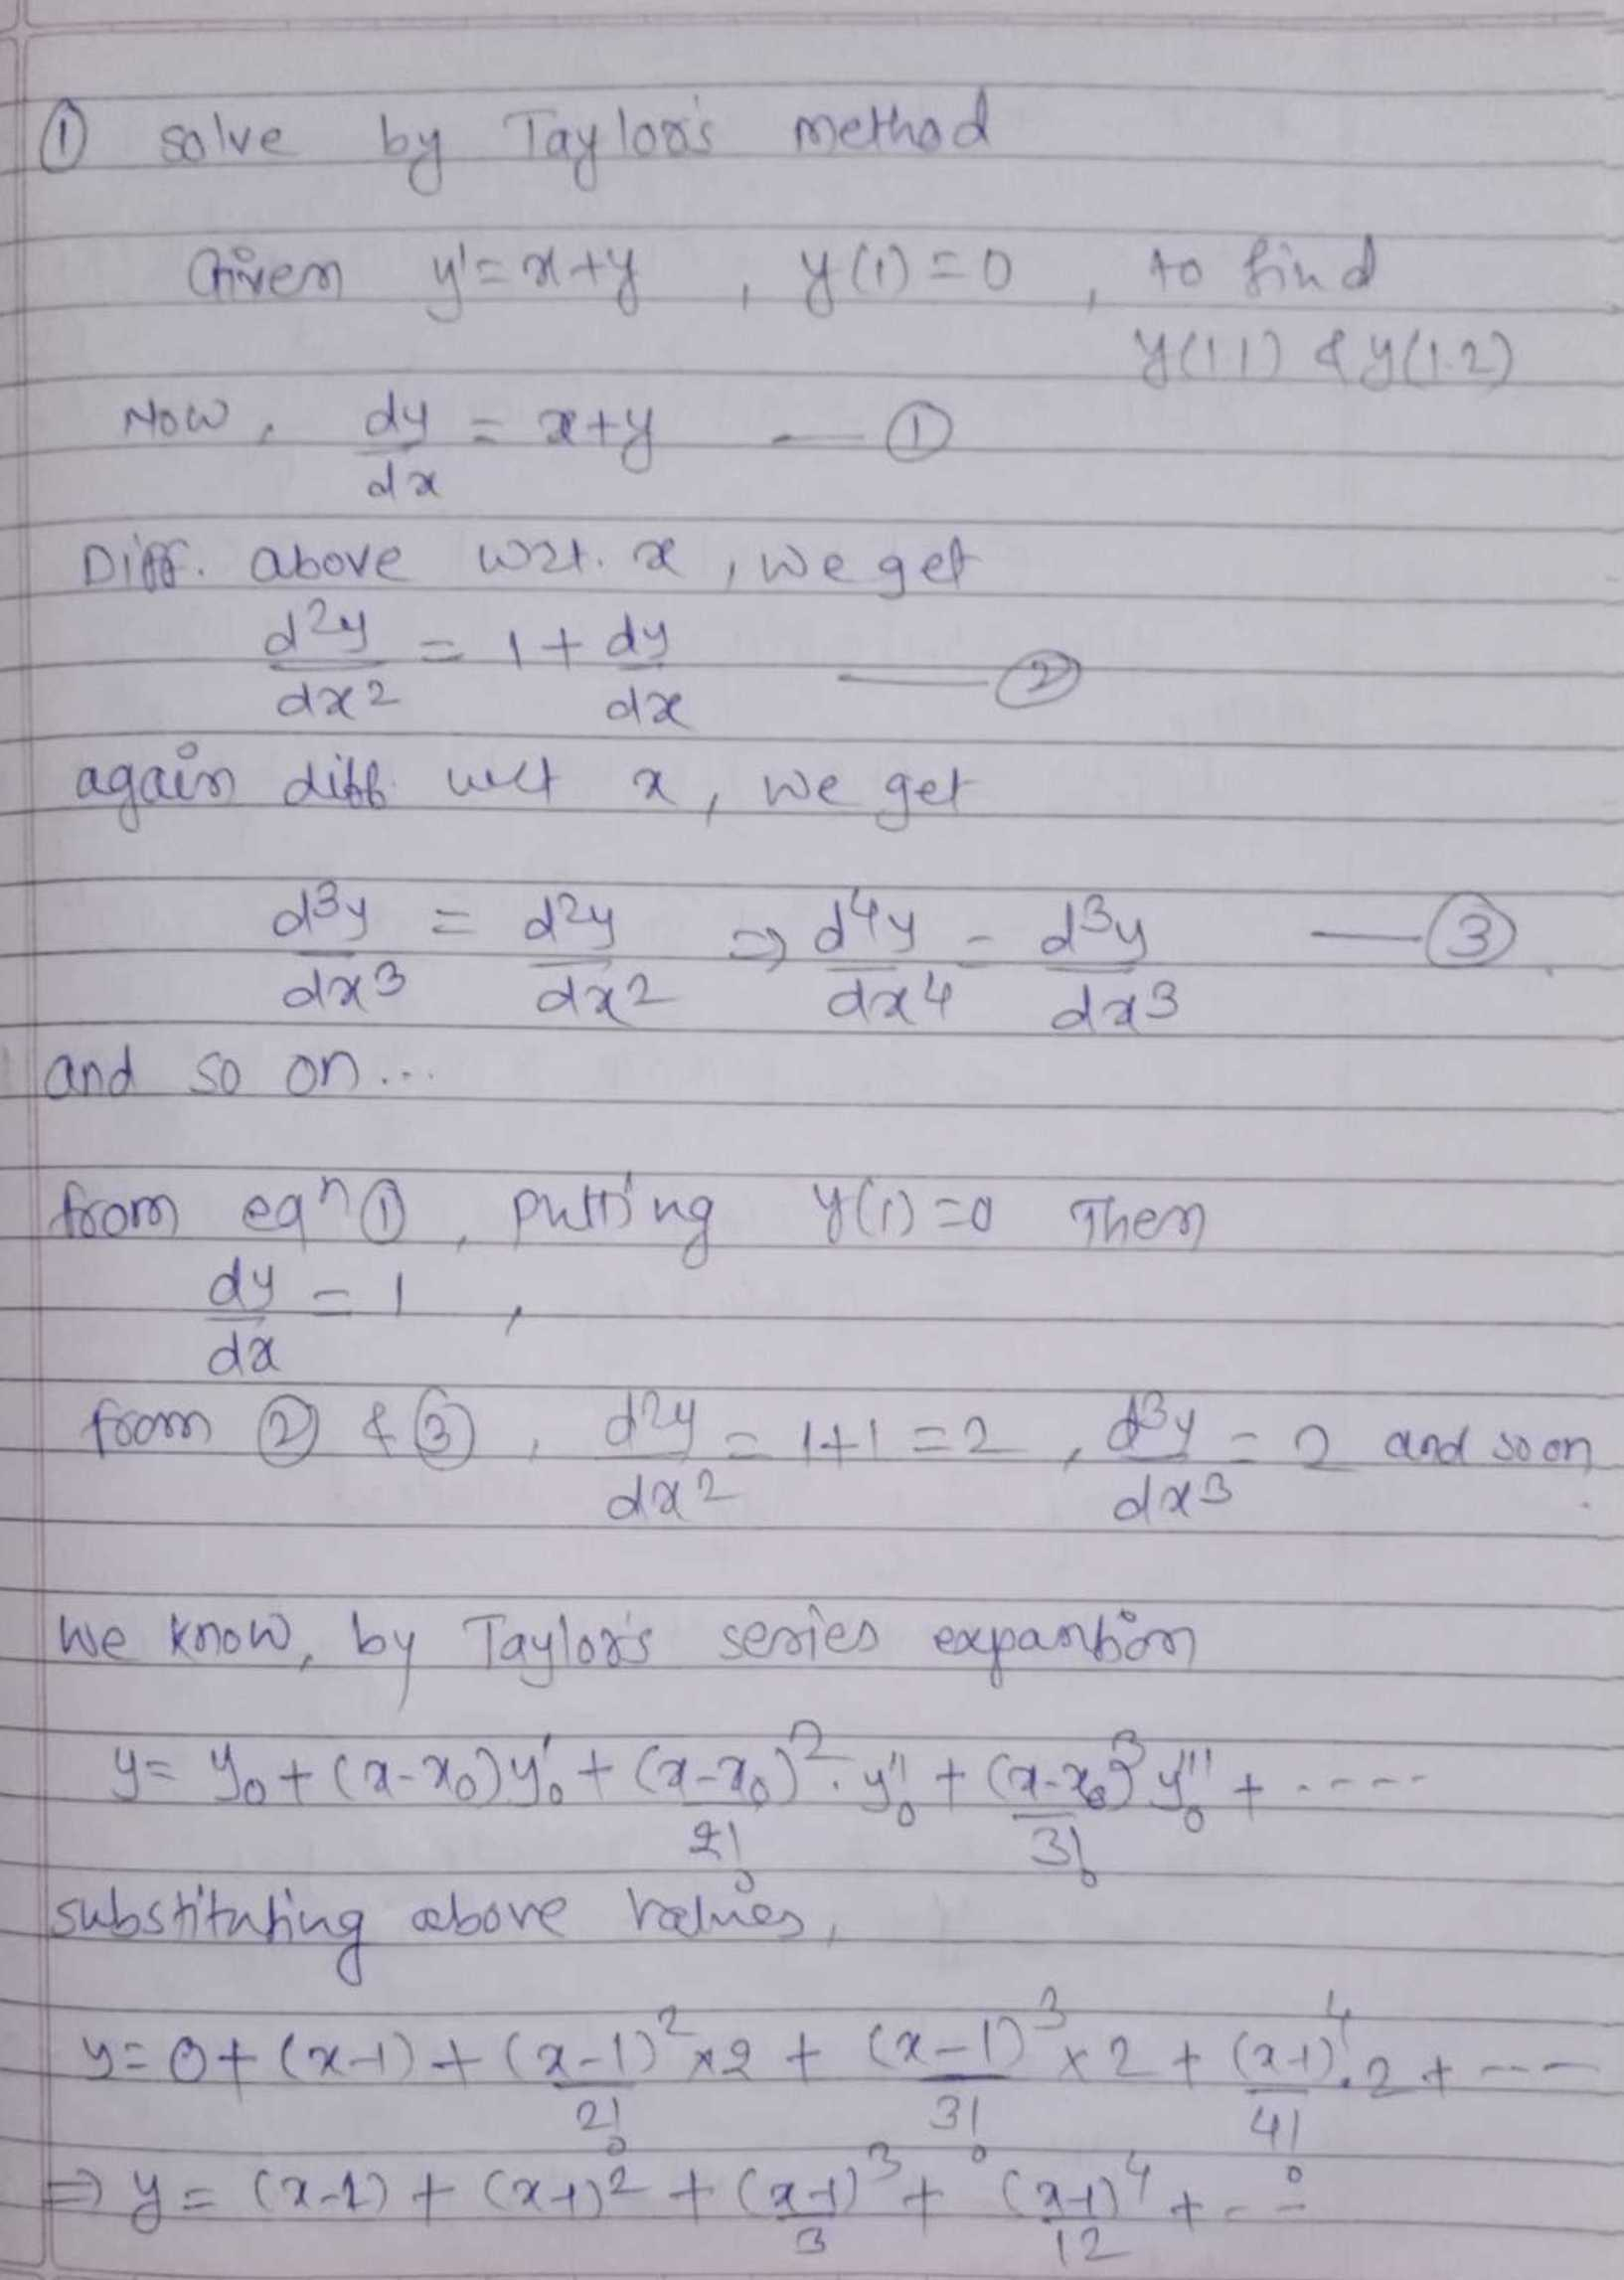 ① solve by Taylor's method
Given y' = x+y , y(1) = 0 , to find
y(1.1) & y(1.2)
Now, dy/dx = x+y — ①
Diff. above w.r.t. x , we get
d²y/dx² = 1 + dy/dx — ②
again diff. wrt x, we get
d³y/dx³ = d²y/dx² ⇒ d⁴y/dx⁴ = d³y/dx³ — ③
and so on...
from eqⁿ ① , putting y(1) = 0 Then
dy/dx = 1 ,
from ② & ③ , d²y/dx² = 1+1 = 2 , d³y/dx³ = 2 and so on.
We know, by Taylor's series expansion
y = y₀ + (x-x₀)y₀' + (x-x₀)²/2! . y₀'' + (x-x₀)³/3! y₀''' + .....
substituting above values,
y = 0 + (x-1) + (x-1)²/2! × 2 + (x-1)³/3! × 2 + (x-1)⁴/4! . 2 + ---
⇒ y = (x-1) + (x-1)² + (x-1)³/3 + (x-1)⁴/12 + ---